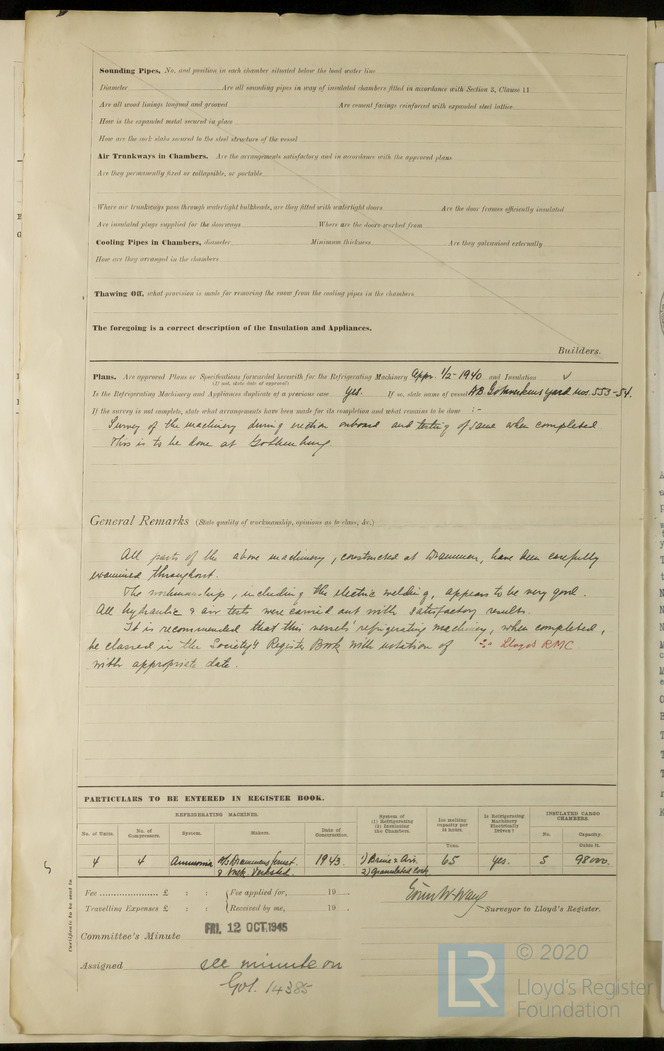 Sounding Pipes, No. and position in each chamber situated below the load water line
Diameter Are all sounding pipes in way of insulated chambers fitted in accordance with Section 3, Clause 11
Are all wood linings tongued and grooved Are cement facings reinforced with expanded steel lattice
How is the expanded metal secured in place
How are the cork slabs secured to the steel structure of the vessel
Air Trunkways in Chambers. Are the arrangements satisfactory and in accordance with the approved plans
Are they permanently fixed or collapsible, or portable
Where air trunkways pass through watertight bulkheads, are they fitted with watertight doors Are the door frames efficiently insulated
Are insulated plugs supplied for the doorways Where are the doors worked from
Cooling Pipes in Chambers, diameter Minimum thickness Are they galvanised externally
How are they arranged in the chambers
Thawing Off, what provision is made for removing the snow from the cooling pipes in the chambers
The foregoing is a correct description of the Insulation and Appliances.
Builders.
Plans. Are approved Plans or Specifications forwarded herewith for the Refrigerating Machinery Appr. 1/2-1940 and Insulation
(If not, state date of approval)
Is the Refrigerating Machinery and Appliances duplicate of a previous case Yes. If so, state name of vessel AB. Götaverkens yard nos. 553-54.
If the survey is not complete, state what arrangements have been made for its completion and what remains to be done :-
Survey of the machinery during erection onboard and testing of same when completed
This is to be done at Gothenburg
General Remarks (State quality of workmanship, opinions as to class, &c.)
All parts of the above machinery, constructed at Drammen, have been carefully
examined throughout.
The workmanship, including the electric welding, appears to be very good.
All hydraulic & air tests were carried out with satisfactory results.
It is recommended that this vessels' refrigerating machinery, when completed,
be classed in the Society's Register Book with notation of Lloyds RMC
with appropriate date.
PARTICULARS TO BE ENTERED IN REGISTER BOOK.
REFRIGERATING MACHINES.
No. of Units. No. of Compressors. System. Makers. Date of Construction. System of (1) Refrigerating (2) Insulating the Chambers. Ice melting capacity per 24 hours. Is Refrigerating Machinery Electrically Driven? INSULATED CARGO CHAMBERS.
No. Capacity.
Tons. Cubic ft.
4 4 Ammonia A/S Drammens Jernst. 1943. 1) Brine & Air. 65 Yes. 5 98000.
& Mek. Verksted. 2) Granulated Cork.
Fee £ : : Fee applied for, 19
Travelling Expenses £ : : Received by me, 19
Surveyor to Lloyd's Register.
Certificate to be sent to
Committee's Minute FRI. 12 OCT. 1945
Assigned see minute on
Got. 14385
© 2020
LR Lloyd's Register
Foundation